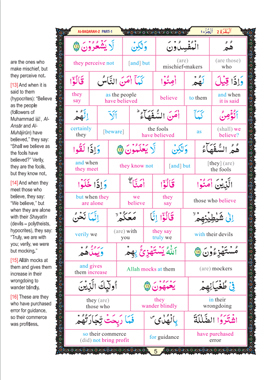 AL-BAQARAH-2 PART-1
are the ones who
make mischief, but
they perceive not.
[13] And when it is
said to them
(hypocrites): "Believe
as the people
(followers of
Muhammad ﷺ, Al-
Ansâr and Al-
Muhâjirûn) have
believed," they say:
"Shall we believe as
the fools have
believed?" Verily,
they are the fools,
but they know not.
[14] And when they
meet those who
believe, they say:
"We believe," but
when they are alone
with their Shayâtîn
(devils – polytheists,
hypocrites), they say:
"Truly, we are with
you; verily, we were
but mocking."
[15] Allâh mocks at
them and gives them
increase in their
wrongdoing to
wander blindly.
[16] These are they
who have purchased
error for guidance,
so their commerce
was profitless.
هُمُ الْمُفْسِدُوْنَ وَلٰكِنْ لَّا يَشْعُرُوْنَ
they perceive not [and] but (are) mischief-makers (are those) who
وَإِذَا قِيْلَ لَهُمْ اٰمِنُوْا كَمَآ اٰمَنَ النَّاسُ قَالُوْٓا
they say as the people have believed believe to them and when it is said
اَنُؤْمِنُ كَمَآ اٰمَنَ السُّفَهَآءُ اَلَآ اِنَّهُمْ
certainly they [beware] the fools have believed as (shall) we believe?
هُمُ السُّفَهَآءُ وَلٰكِنْ لَّا يَعْلَمُوْنَ وَاِذَا لَقُوا
and when they meet they know not [and] but [they] (are) the fools
الَّذِيْنَ اٰمَنُوْا قَالُوْٓا اٰمَنَّا وَاِذَا خَلَوْا
but when they are alone we believe they say those who believe
اِلٰى شَيٰطِيْنِهِمْ قَالُوْٓا اِنَّا مَعَكُمْ اِنَّمَا نَحْنُ
verily we (are) with you they say truly we with their devils
مُسْتَهْزِءُوْنَ اَللّٰهُ يَسْتَهْزِئُ بِهِمْ وَيَمُدُّهُمْ
and gives them increase Allah mocks at them (are) mockers
فِيْ طُغْيَانِهِمْ يَعْمَهُوْنَ اُولٰٓئِكَ الَّذِيْنَ
they (are) those who they wander blindly in their wrongdoing
اشْتَرَوُا الضَّلٰلَةَ بِالْهُدٰى فَمَا رَبِحَتْ تِّجَارَتُهُمْ
so their commerce (did) not bring profit for guidance have purchased error
5